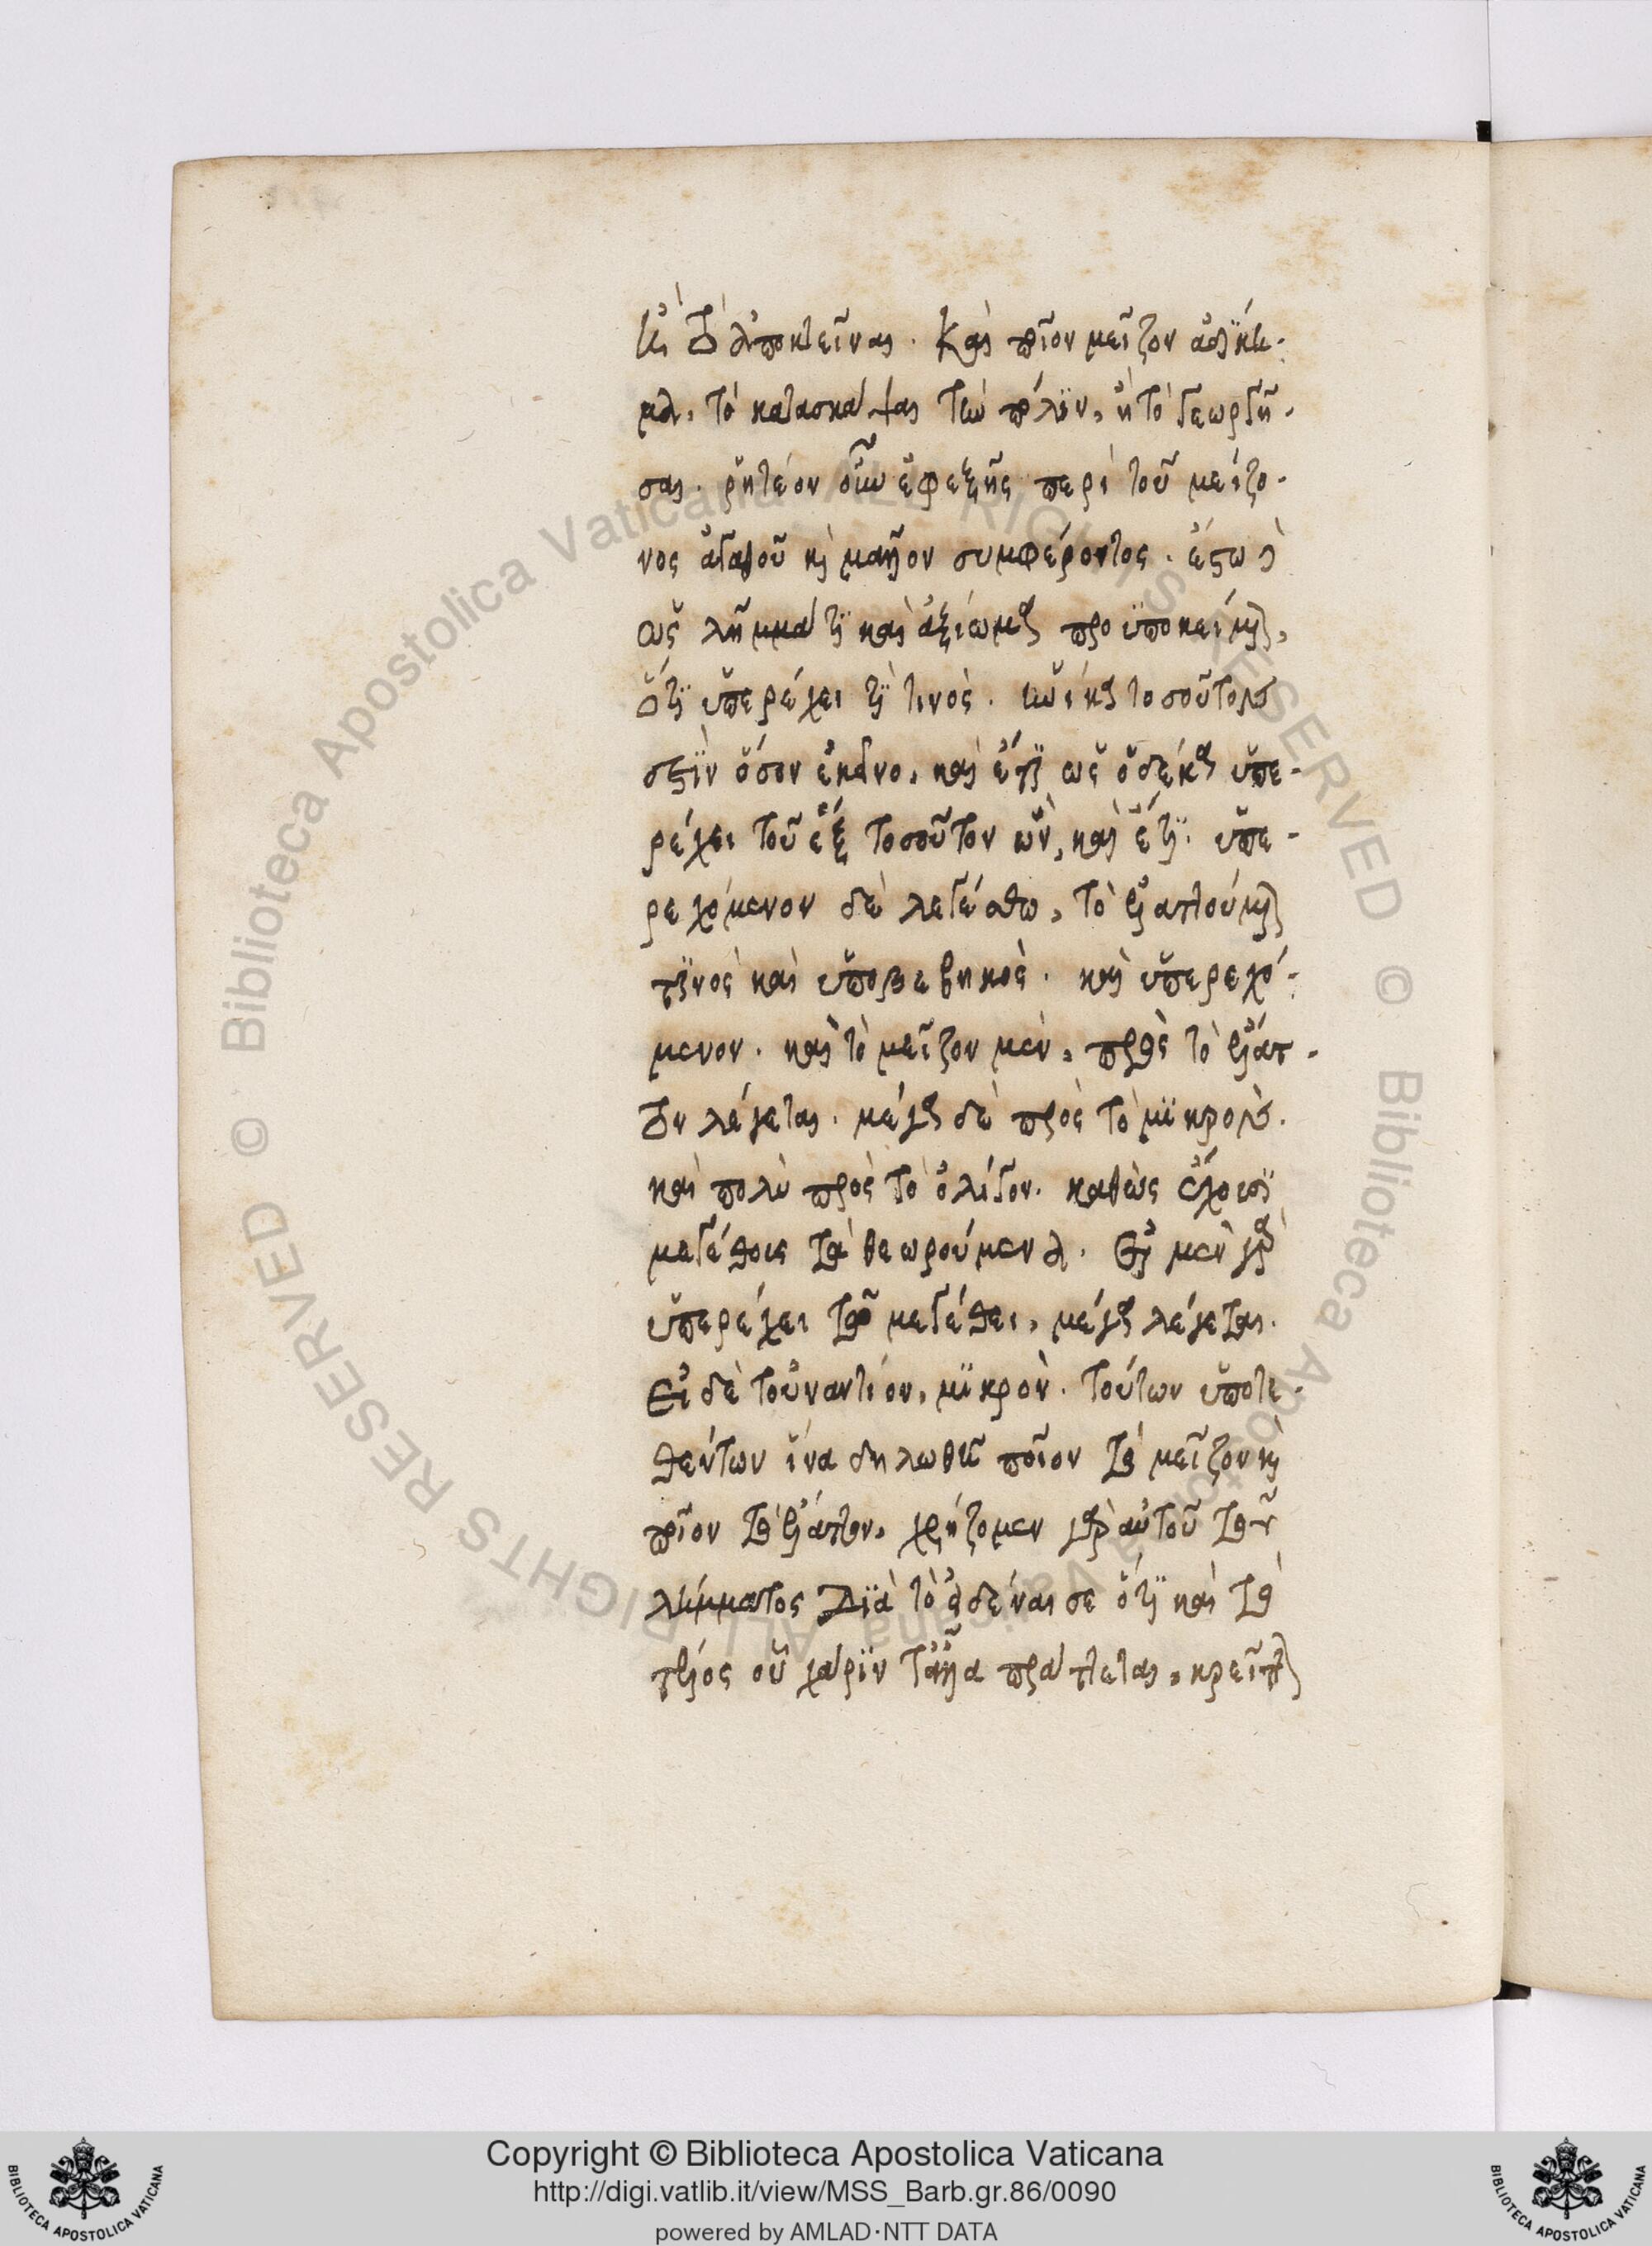 ἢ τὸ ἀποκτεῖναι. Καὶ ποῖον μεῖζον ἀδίκη-
μα, τὸ κατασκάψαι τὴν πόλιν, ἢ τὸ γεωργῆ-
σαι. ῥητέον οὖν ἐφεξῆς περὶ τοῦ μείζο-
νος ἀγαθοῦ καὶ μᾶλλον συμφέροντος. ἔστω
ὡς λῆμμά τι καὶ ἀξίωμα προϋποκείμενον,
ὅτι ὑπερέχει τί τινὸς. ἡνίκα τοσοῦτον
ἐστὶν ὅσον ἐκεῖνο, καὶ ἔτι ὡς ὁ δέκα ὑπε-
ρέχει τοῦ ἓξ τοσοῦτον ὢν, καὶ ἔτι. ὑπε-
ρεχόμενον δὲ λεγέσθω, τὸ ἐλαττούμενον
τινὸς καὶ ὑποβεβηκὸς. καὶ ὑπερεχό-
μενον. καὶ τὸ μεῖζον μὲν, πρὸς τὸ ἔλατ-
τον λέγεται. μέγα δὲ πρὸς τὸ μικρὸν.
καὶ πολὺ πρὸς τὸ ὀλίγον. καθὼς ἔχουσι
μεγέθους τὰ θεωρούμενα. Εἰ μὲν γὰρ
ὑπερέχει τῷ μεγέθει, μέγα λέγεται.
Εἰ δὲ τοὐναντίον, μικρὸν. Τούτων ὑποτε-
θέντων ἵνα δηλωθῇ ποῖον τὸ μεῖζον καὶ
ποῖον τὸ ἔλαττον, χρῄζομεν παρ' αὐτοῦ τοῦ
λήμματος Διὰ τὸ εἰδέναι σε ὅτι καὶ τὸ
τέλος οὗ χάριν τἄλλα πράττεται, κρεῖττον